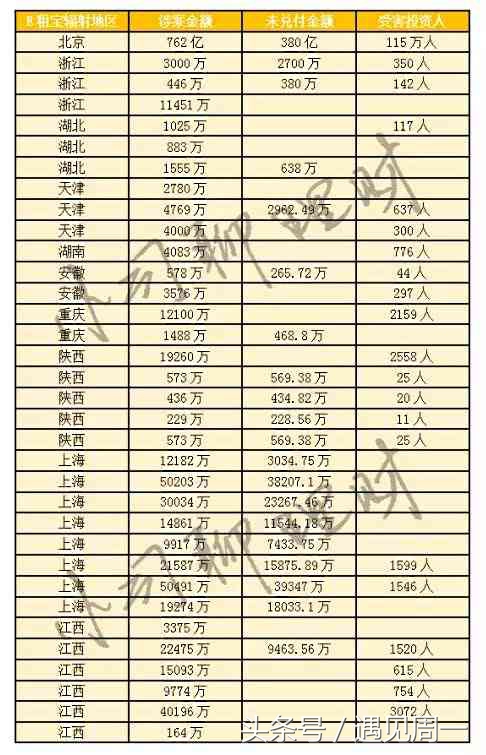 E租宝辐射地区 涉案金额 未兑付金额 受害投资人
北京 762亿 380亿 115万人
浙江 3000万 2700万 350人
浙江 446万 380万 142人
浙江 11451万
湖北 1025万 117人
湖北 883万
湖北 1555万 638万
天津 2780万
天津 4769万 2962.49万 637人
天津 4000万 300人
湖南 4083万 776人
安徽 578万 265.72万 44人
安徽 3576万 297人
重庆 12100万 2159人
重庆 1488万 468.8万
陕西 19260万 2558人
陕西 573万 569.38万 25人
陕西 436万 434.82万 20人
陕西 229万 228.56万 11人
陕西 573万 569.38万 25人
上海 12182万 3034.75万
上海 50203万 38207.1万
上海 30034万 23267.46万
上海 14861万 11544.18万
上海 9917万 7433.75万
上海 21587万 15875.89万 1599人
上海 50491万 39347万 1546人
上海 19274万 18033.1万
江西 3375万
江西 22475万 9463.56万 1520人
江西 15093万 615人
江西 9774万 754人
江西 40196万 3072人
江西 164万
小司聊理财
小司聊理财
头条号 / 遇见周一